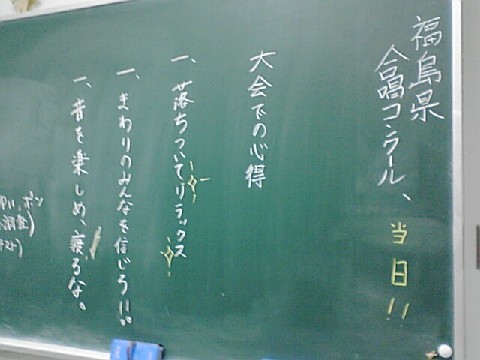 福島県
合唱コンクール、当日!!
大会での心得
一、落ちついてリラックス
一、まわりのみんなを信じろ!!。
一、音を楽しめ、寝るな。